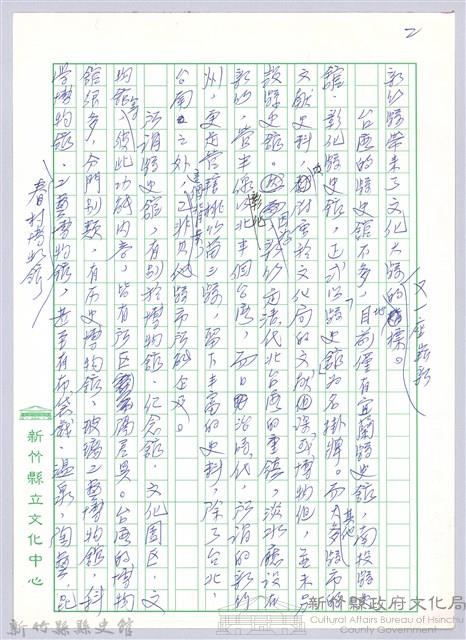 2
新竹縣帶來了文化大縣的標。
又一座嶄新
台灣的縣史館不多,目前僅有宜蘭縣史館,南投縣史
館、彰化縣史館,正式以「縣史館」為名掛牌。而大多數縣市的
其他
文獻史料,附屬於文化局的文獻課或博物組,並未另
設縣史館。因為新竹是清代北台灣的重鎮,淡水廳設在
新竹,管半個北台灣,而日治時代,所謂的新竹
州,更是管轄桃竹苗三縣,留下豐富的史料,除了台北、
台南之外,已非其他縣市所能企及。
所謂縣史館,有別於博物館、紀念館、文化園區、文
物館等,彼此功能內容,皆有所區隔差異。台灣的博物
館很多,分門別類,有歷史博物館,玻璃工藝博物館,科
學博物館、工藝博物館,甚至有布袋戲、溫泉,陶藝、
眷村博物館
新竹縣立文化中心
新竹縣縣史館
新竹縣政府文化局
Cultural Affairs Bureau of Hsinchu County Government